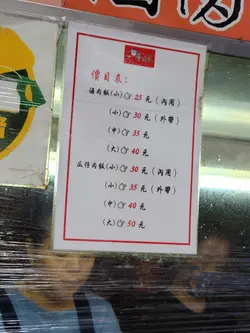 滷肉
價目表:
滷肉飯(小)☞25元(內用)
(小)☞30元(外帶)
(中)☞35元
(大)☞40元
瓜仔肉飯(小)☞30元(內用)
(小)☞35元(外帶)
(中)☞40元
(大)☞50元